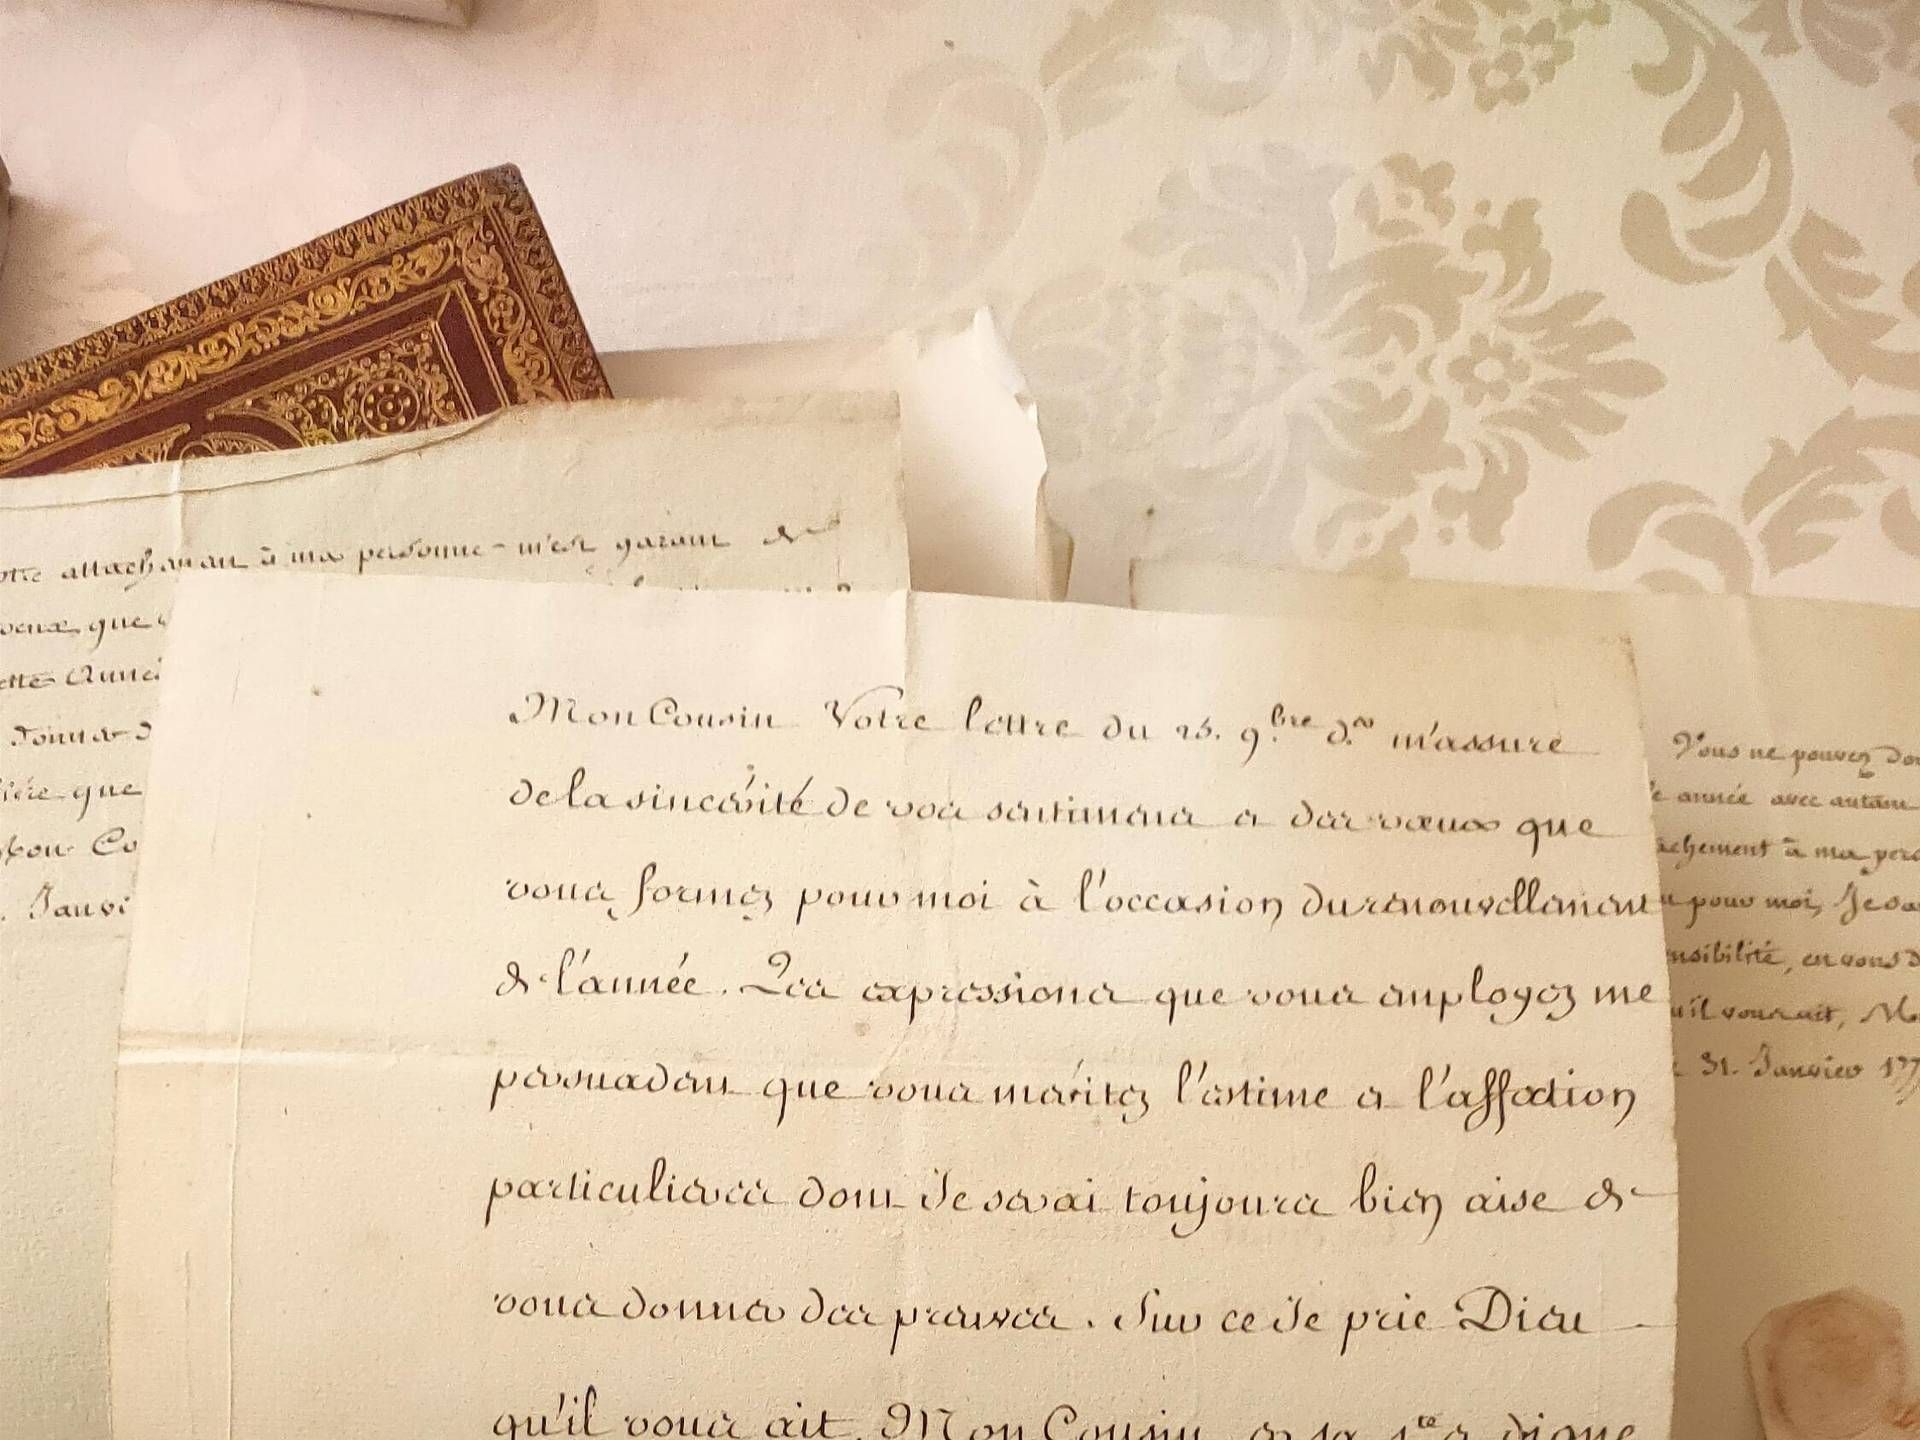 otre attachement à ma personne m'est garant de
voeux que
ette Année
donner d
ière que
Mon Co
. Janvi
Mon Cousin Votre lettre du 23. 9.bre d.er m'assure
de la sincérité de vos sentimens et des voeux que
vous formez pour moi à l'occasion du renouvellement
de l'année. Les expressions que vous employez me
persuadent que vous méritez l'estime et l'affection
particulieres dont Je serai toujours bien aise de
vous donner des preuves. Sur ce Je prie Dieu
qu'il vous ait, Mon Cousin, en sa s.te et digne
Vous ne pouvez dou
e année avec autant
achement à ma pers
pour moi, Je su
nsibilité, en vous d
u'il vous ait, Mo
31. Janvier 177